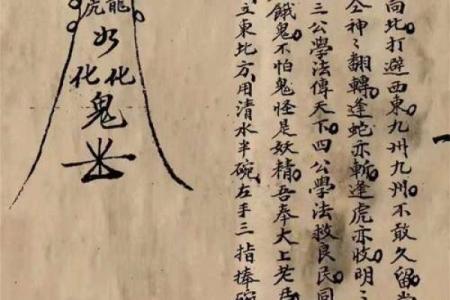 向北打避西東九州九州不敢久留
神〻翻轉逢蛇亦斬逢虎亦收明〻
三公學法傳天下四公學法救良民同
餓鬼不怕鬼怪是妖精吾奉太上老
立東北方用清水半碗左手三指捧碗
龍
虎
化
化
鬼